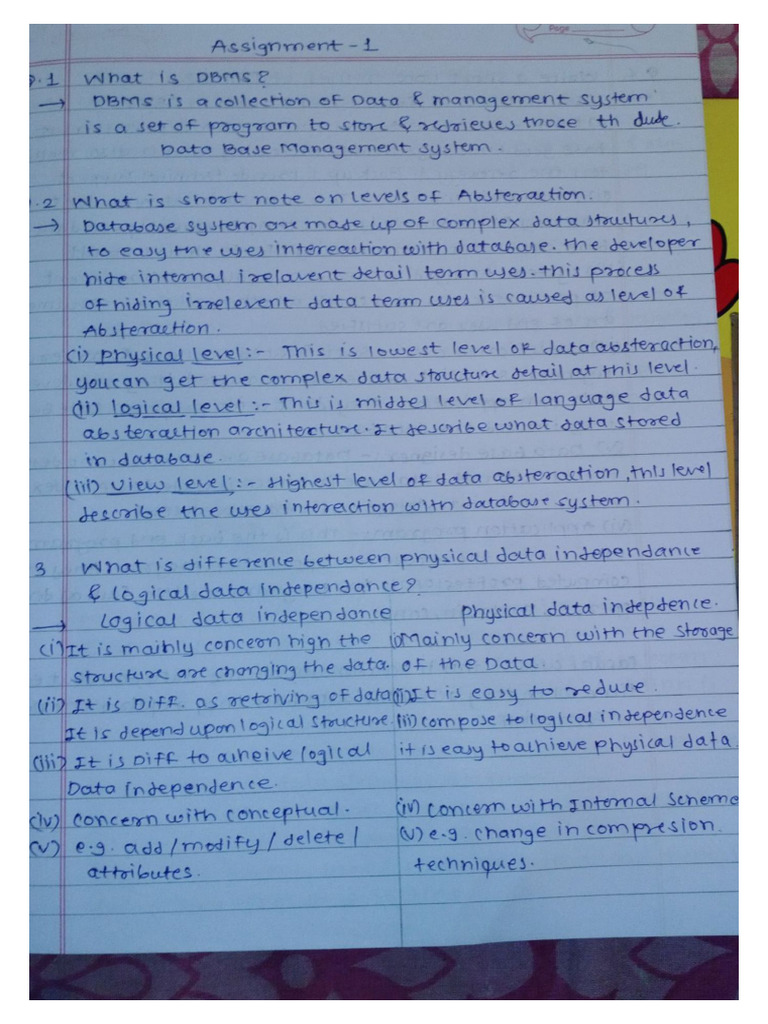 Page
Assignment - 1
Q.1 What is DBMS?
→ DBMS is a collection of Data & management system
is a set of program to store & redrieves those th
Data Base Management system.
.2 What is short note on levels of Absteraction.
→ Database system are made up of complex data structures,
to easy the uses intereaction with database. the developer
hide internal irelavent detail term uses. this process
of hiding irrelevent data term uses is caused as level of
Absteraction.
(i) physical level :- This is lowest level of data absteraction,
you can get the complex data structure detail at this level.
(ii) logical level :- This is middel level of language data
absteraction architecture. It describe what data stored
in database.
(iii) view level :- Highest level of data absteraction, this level
describe the uses interection with database system.
3 What is difference between physical data independance
& Logical data Independance?
→ Logical data independance physical data indeptdence.
(i) It is mainly concern high the (i) Mainly concern with the storage
structure are changing the data. of the Data.
(ii) It is Diff. as retriving of data (ii) It is easy to reduce.
It is depend upon logical structure. (iii) compose to logical independence
(iii) It is Diff to acheive logical it is easy to achieve physical data
Data independence.
(iv) concern with conceptual. (iv) concern with Internal Scheme
(v) e.g. add / modify / delete / (v) e.g. change in compresion
attributes. techniques.